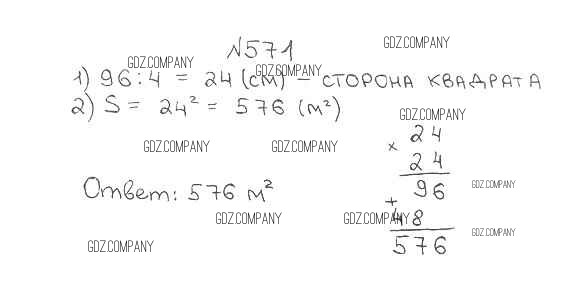 N571
GDZ.COMPANY
GDZ.COMPANY
GDZ.COMPANY
1) 96:4 = 24 (см) – СТОРОНА КВАДРАТА
2) S = 24² = 576 (м²)
GDZ.COMPANY
× 24
24
96
+
48
576
GDZ.COMPANY
GDZ.COMPANY
Ответ: 576 м²
GDZ.COMPANY
GDZ.COMPANY
GDZ.COMPANY
GDZ.COMPANY
GDZ.COMPANY